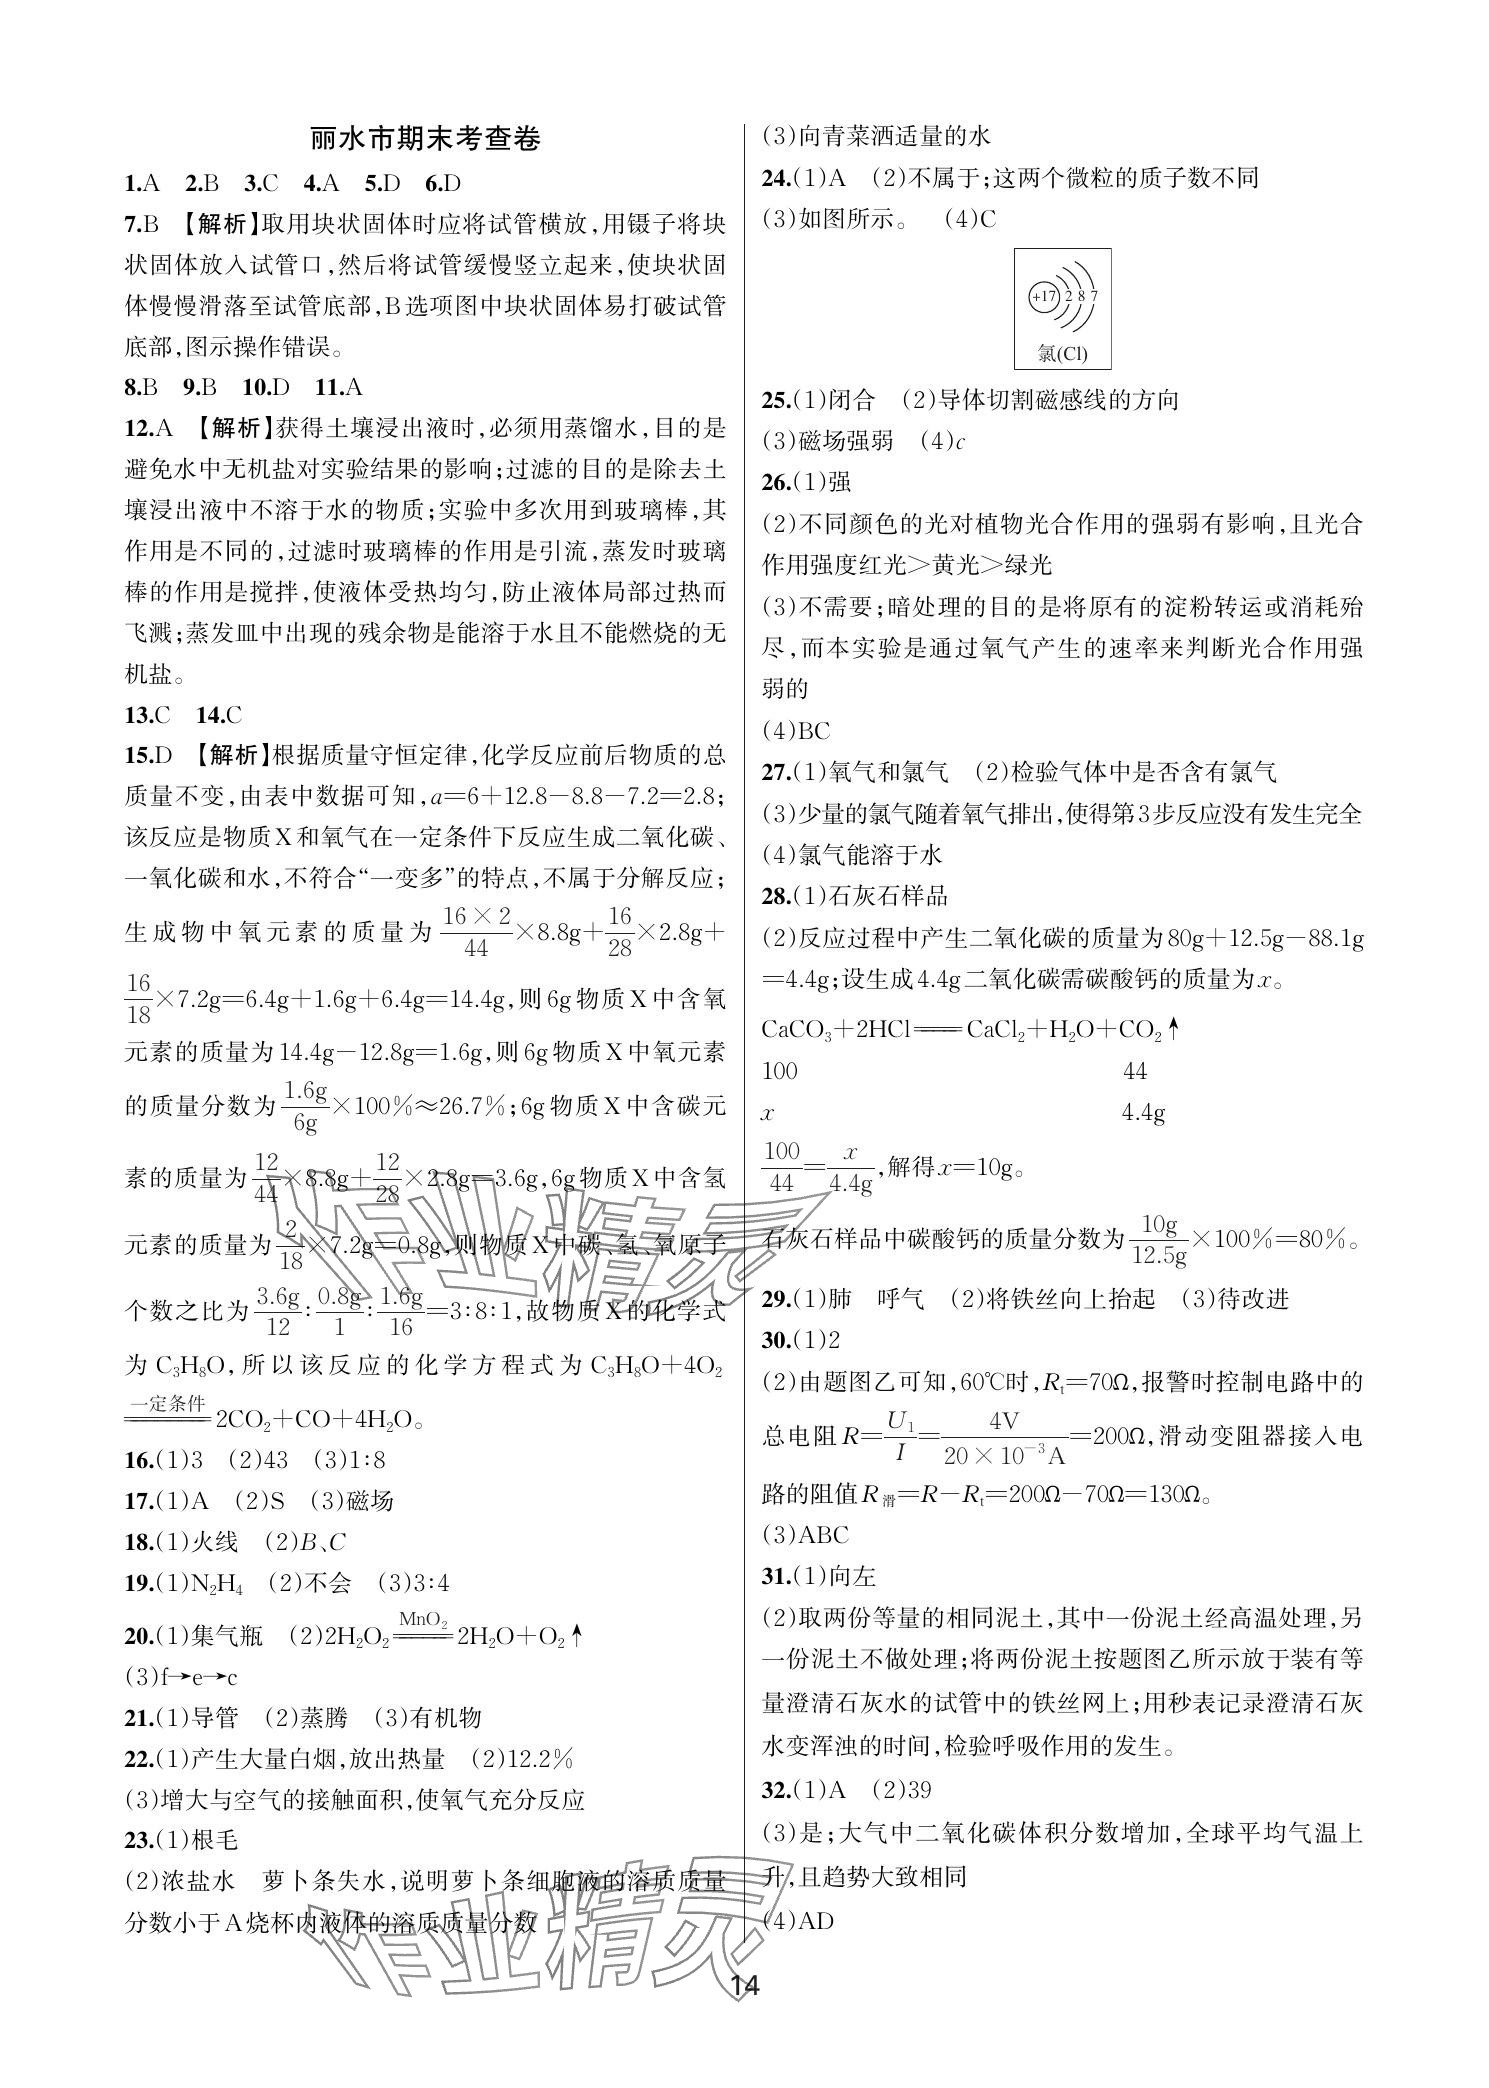 丽水市期末考查卷
1.A 2.B 3.C 4.A 5.D 6.D
7.B 【解析】取用块状固体时应将试管横放,用镊子将块
状固体放入试管口,然后将试管缓慢竖立起来,使块状固
体慢慢滑落至试管底部,B选项图中块状固体易打破试管
底部,图示操作错误。
8.B 9.B 10.D 11.A
12.A 【解析】获得土壤浸出液时,必须用蒸馏水,目的是
避免水中无机盐对实验结果的影响;过滤的目的是除去土
壤浸出液中不溶于水的物质;实验中多次用到玻璃棒,其
作用是不同的,过滤时玻璃棒的作用是引流,蒸发时玻璃
棒的作用是搅拌,使液体受热均匀,防止液体局部过热而
飞溅;蒸发皿中出现的残余物是能溶于水且不能燃烧的无
机盐。
13.C 14.C
15.D 【解析】根据质量守恒定律,化学反应前后物质的总
质量不变,由表中数据可知,a=6+12.8-8.8-7.2=2.8;
该反应是物质X和氧气在一定条件下反应生成二氧化碳、
一氧化碳和水,不符合“一变多”的特点,不属于分解反应;
生成物中氧元素的质量为 16×2/44×8.8g+16/28×2.8g+
16/18×7.2g=6.4g+1.6g+6.4g=14.4g,则6g物质X中含氧
元素的质量为14.4g-12.8g=1.6g,则6g物质X中氧元素
的质量分数为1.6g/6g×100%≈26.7%;6g物质X中含碳元
素的质量为12/44×8.8g+12/28×2.8g=3.6g,6g物质X中含氢
元素的质量为2/18×7.2g=0.8g,则物质X中碳、氢、氧原子
个数之比为3.6g/12:0.8g/1:1.6g/16=3:8:1,故物质X的化学式
为C₃H₈O,所以该反应的化学方程式为C₃H₈O+4O₂
一定条件
═══2CO₂+CO+4H₂O。
16.(1)3 (2)43 (3)1:8
17.(1)A (2)S (3)磁场
18.(1)火线 (2)B、C
19.(1)N₂H₄ (2)不会 (3)3:4
20.(1)集气瓶 (2)2H₂O₂ ══MnO₂══ 2H₂O+O₂↑
(3)f→e→c
21.(1)导管 (2)蒸腾 (3)有机物
22.(1)产生大量白烟,放出热量 (2)12.2%
(3)增大与空气的接触面积,使氧气充分反应
23.(1)根毛
(2)浓盐水 萝卜条失水,说明萝卜条细胞液的溶质质量
分数小于A烧杯内液体的溶质质量分数
(3)向青菜洒适量的水
24.(1)A (2)不属于;这两个微粒的质子数不同
(3)如图所示。 (4)C
+17 2 8 7
氯(Cl)
25.(1)闭合 (2)导体切割磁感线的方向
(3)磁场强弱 (4)c
26.(1)强
(2)不同颜色的光对植物光合作用的强弱有影响,且光合
作用强度红光>黄光>绿光
(3)不需要;暗处理的目的是将原有的淀粉转运或消耗殆
尽,而本实验是通过氧气产生的速率来判断光合作用强
弱的
(4)BC
27.(1)氧气和氯气 (2)检验气体中是否含有氯气
(3)少量的氯气随着氧气排出,使得第3步反应没有发生完全
(4)氯气能溶于水
28.(1)石灰石样品
(2)反应过程中产生二氧化碳的质量为80g+12.5g-88.1g
=4.4g;设生成4.4g二氧化碳需碳酸钙的质量为x。
CaCO₃+2HCl═══CaCl₂+H₂O+CO₂↑
100 44
x 4.4g
100/44=x/4.4g,解得x=10g。
石灰石样品中碳酸钙的质量分数为10g/12.5g×100%=80%。
29.(1)肺 呼气 (2)将铁丝向上抬起 (3)待改进
30.(1)2
(2)由题图乙可知,60℃时,Rₜ=70Ω,报警时控制电路中的
总电阻R=U₁/I=4V/20×10⁻³A=200Ω,滑动变阻器接入电
路的阻值R滑=R-Rₜ=200Ω-70Ω=130Ω。
(3)ABC
31.(1)向左
(2)取两份等量的相同泥土,其中一份泥土经高温处理,另
一份泥土不做处理;将两份泥土按题图乙所示放于装有等
量澄清石灰水的试管中的铁丝网上;用秒表记录澄清石灰
水变浑浊的时间,检验呼吸作用的发生。
32.(1)A (2)39
(3)是;大气中二氧化碳体积分数增加,全球平均气温上
升,且趋势大致相同
(4)AD
作业精灵
作业精灵
14